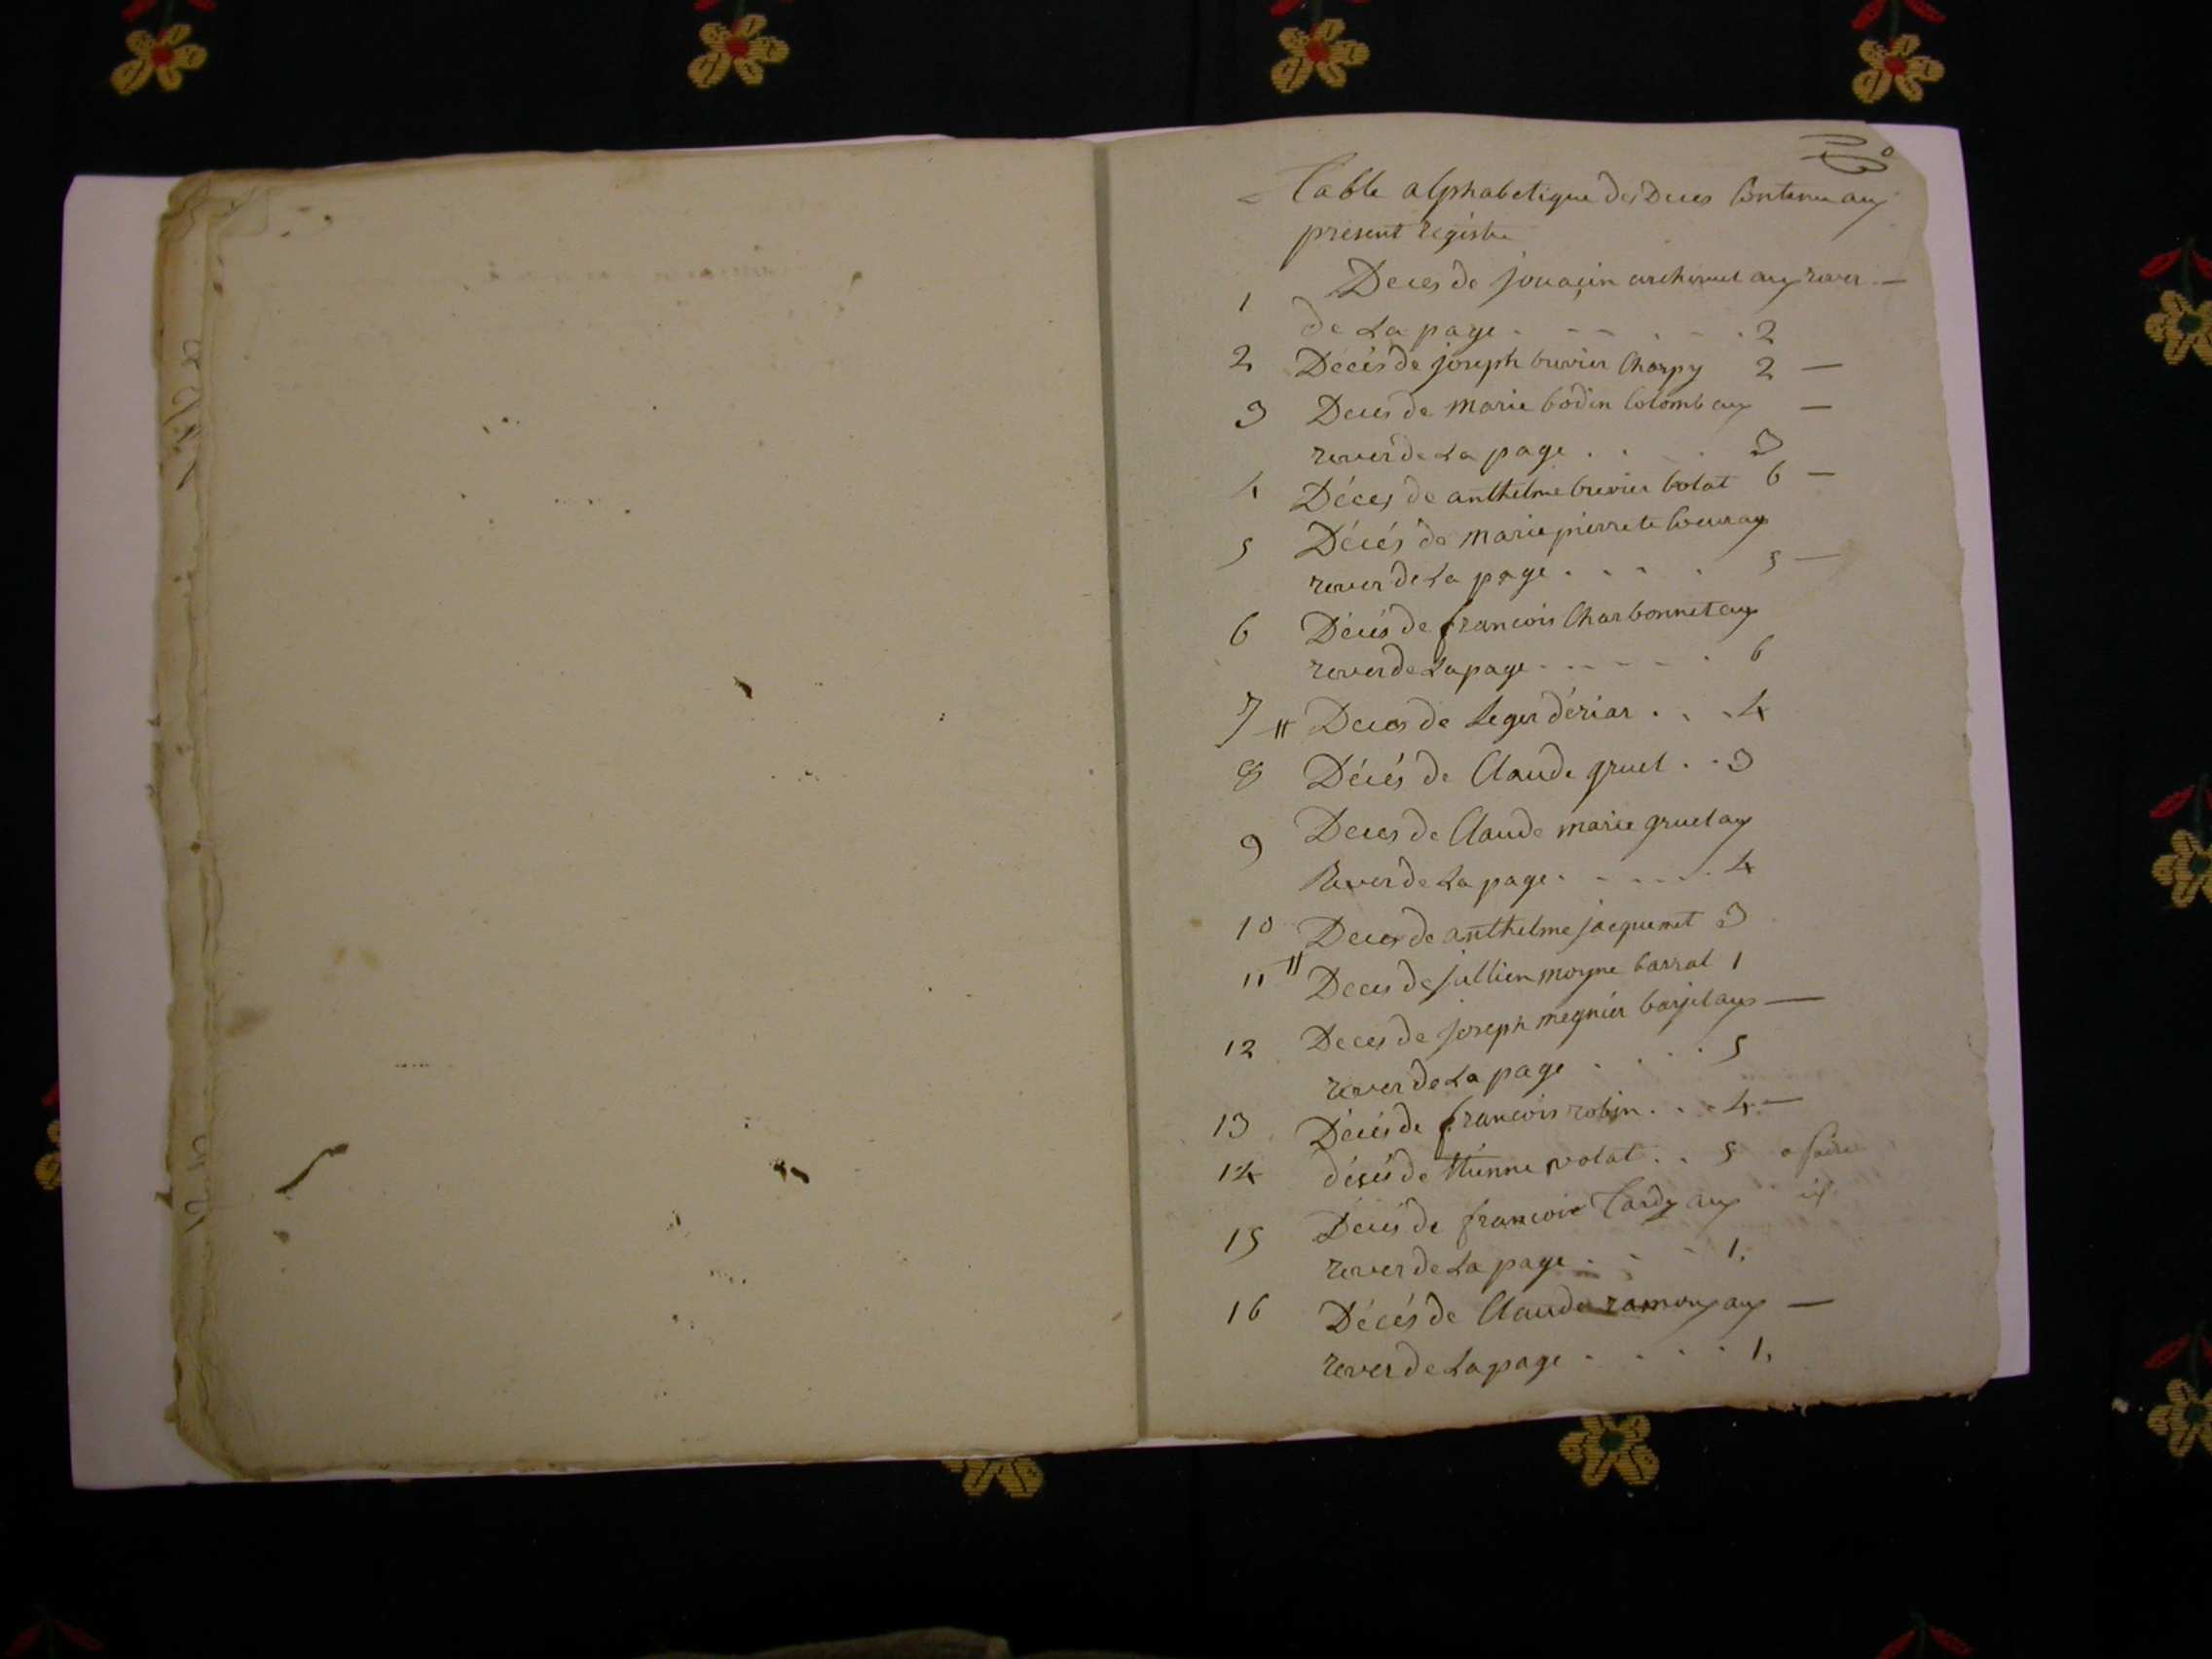 Table alphabetique des Deces Contenu aux
present registre
1 Deces de jouaçin archimet aux rever
de La page . . . . . 2
2 Decés de joseph brevier Charpy 2 —
3 Deces de marie bodin Colomb aux —
rever de La page . . . 3
4 Déces de anthelme brevier bolat 6 —
5 Décés de marie pierrete aux
rever de La page . . . . 5 —
6 Décés de francois Charbonnet aux
rever de La page . . . . . 6
7 Deces de Leger dériar . . . 4
8 Décés de Claude gruel . . 3
9 Deces de Claude marie gruel aux
Rever de La page . . . . . 4
10 Deces de anthelme jacquemet 3
11 Deces de jullien moyne barral 1
12 Deces de joseph megnier aux —
rever de La page . . . . 5
13 Décés de francois robin . . . 4 —
14 décés de Etienne volat . . 5
15 Décés de francois Tardy aux
rever de La page . . . 1.
16 Décés de Claude ramoux aux —
rever de La page . . . . 1.